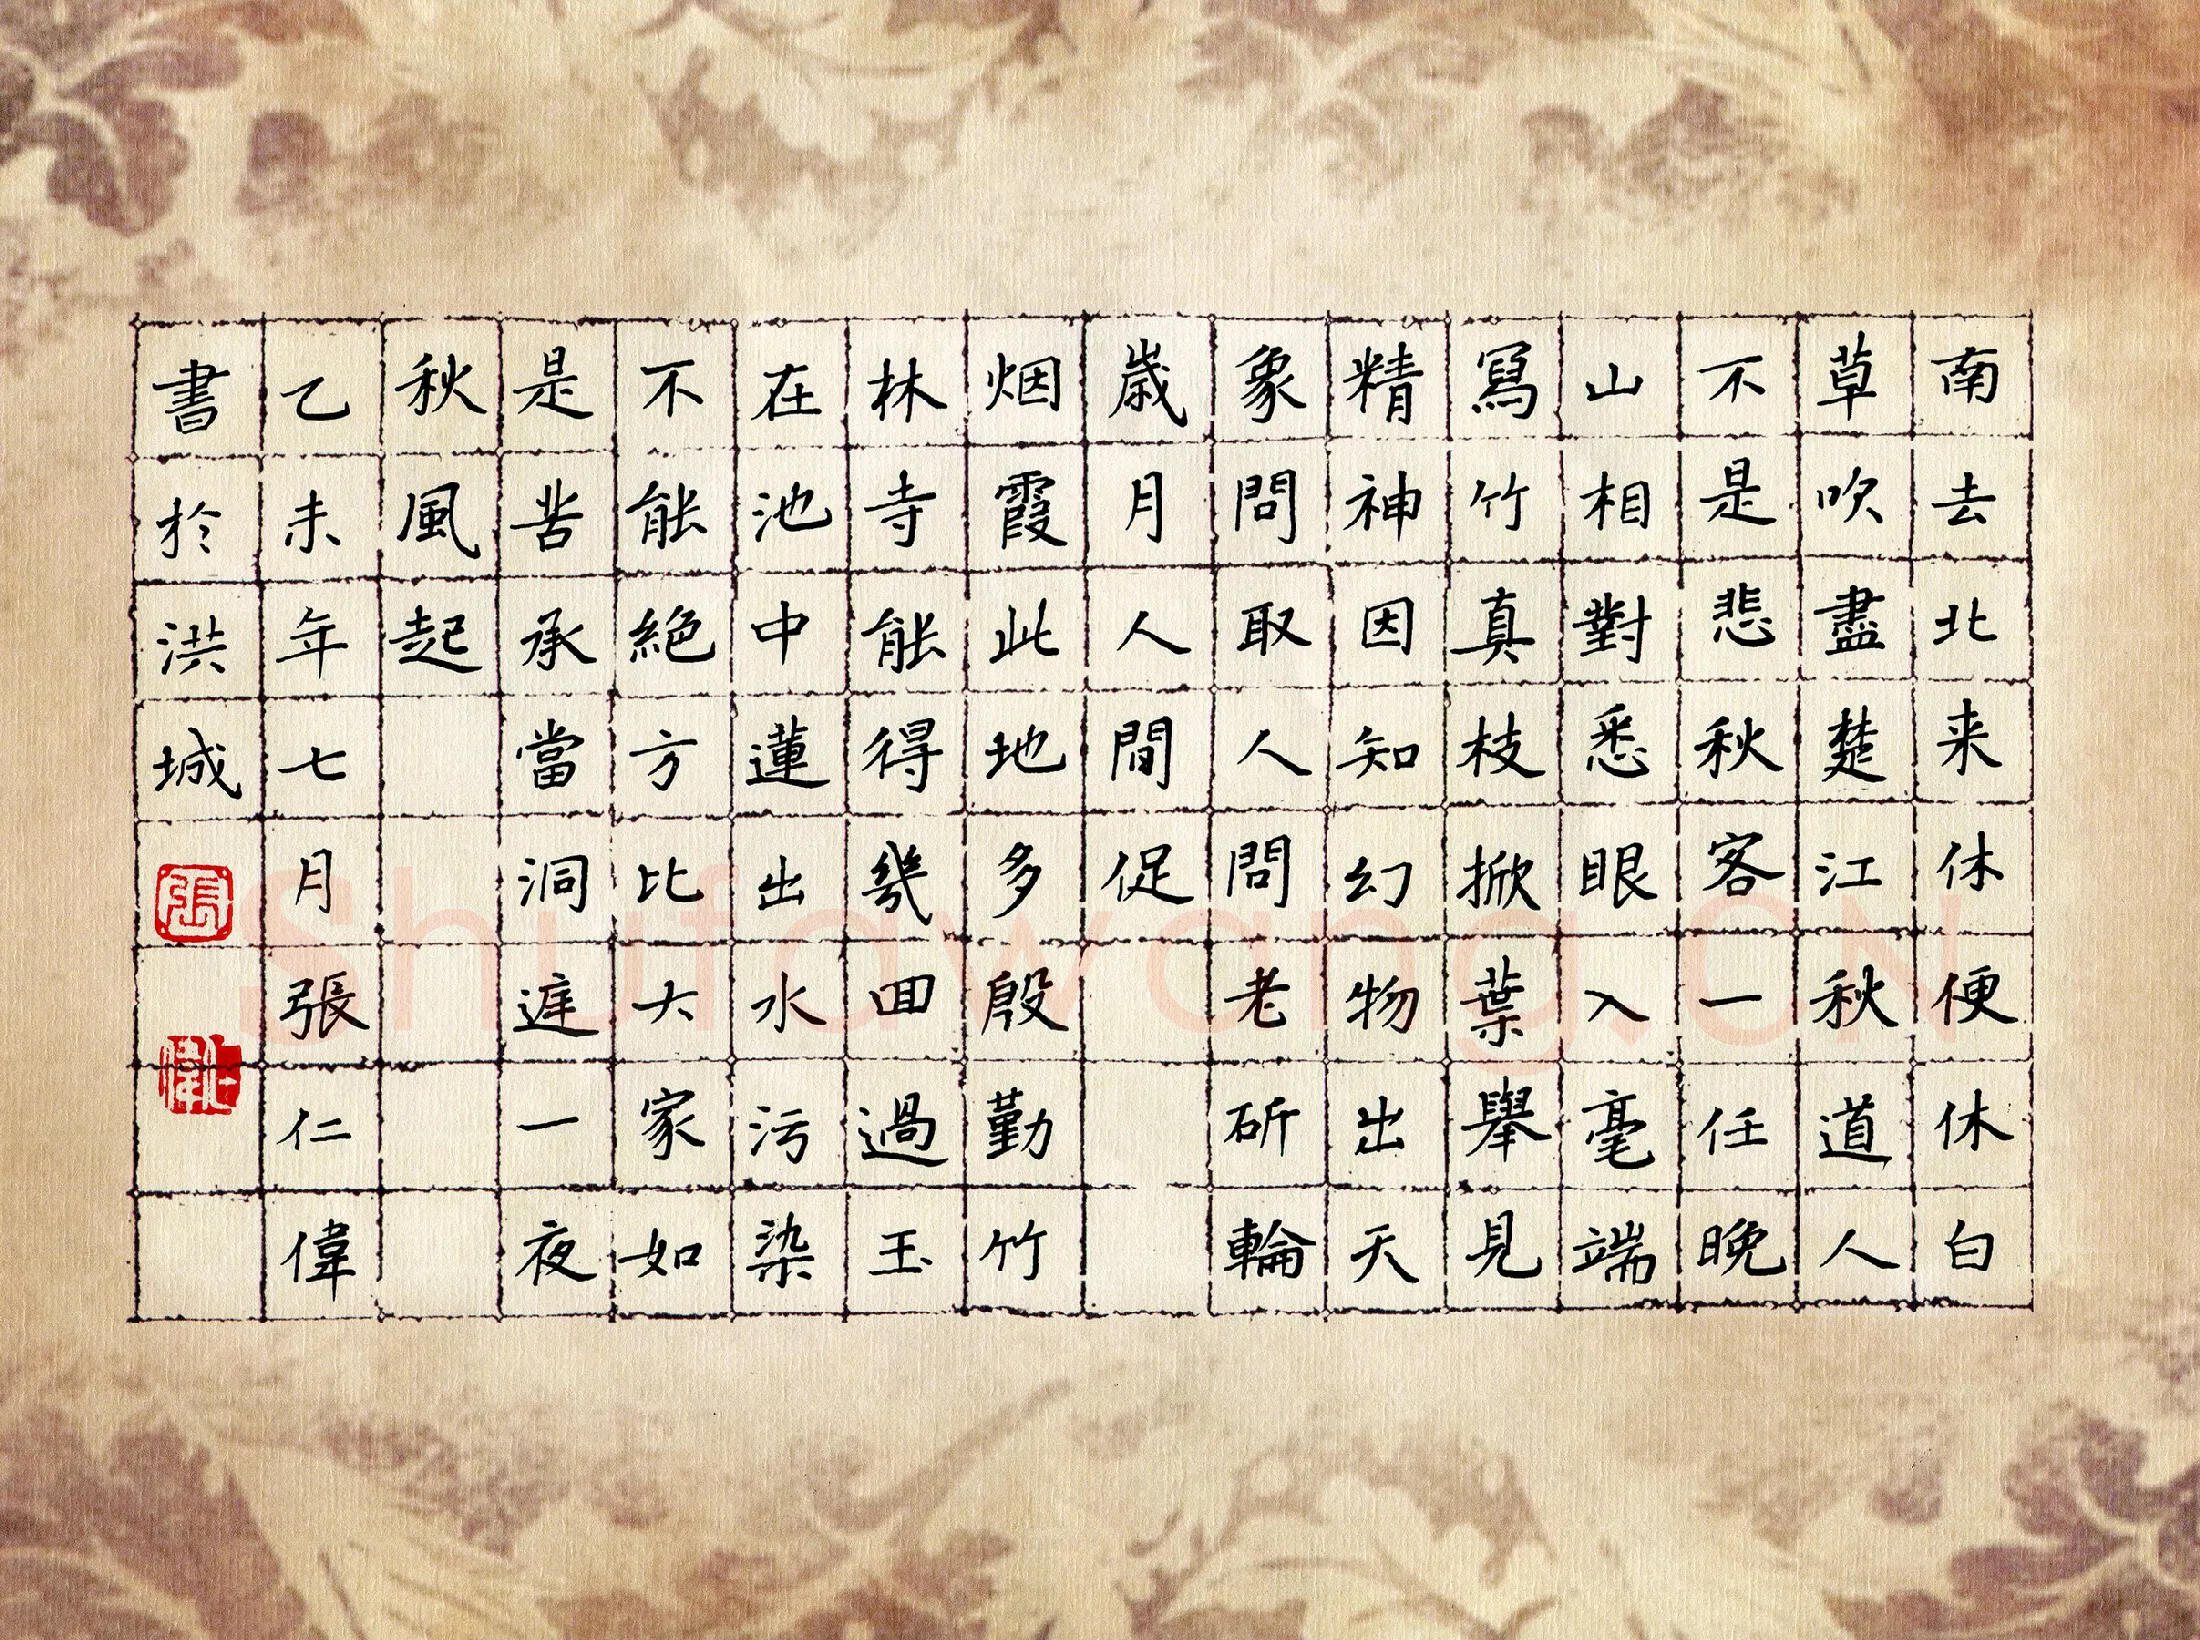 南去北来休便休白
草吹盡楚江秋道人
不是悲秋客一任晚
山相對悉眼入毫端
寫竹真枝掀葉舉見
精神因知幻物出天
象問取人問老斫輪
歲月人間促
烟霞此地多殷勤竹
林寺能得幾回過玉
在池中蓮出水污染
不能絕方比大家如
是苦承當洞遮一夜
秋風起
乙未年七月張仁偉
書於洪城
張
偉
Shufawang.CN